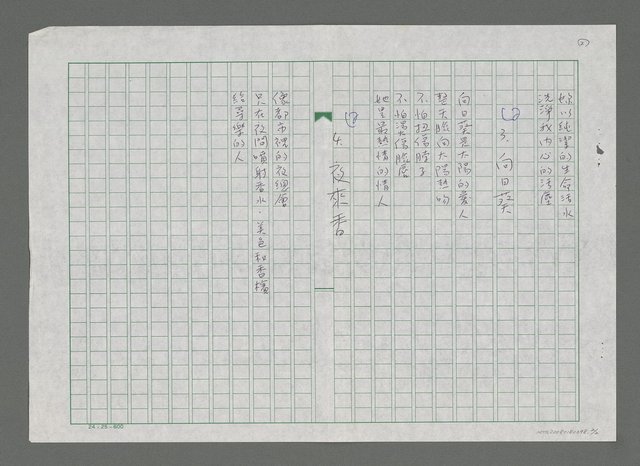 (2)
妳以純潔的生命活水
洗淨我內心的污塵
3. 向日葵
向日葵是太陽的愛人
整天臉向太陽熱吻
不怕扭傷脖子
不怕燙傷臉層
她是最熱情的情人
4. 夜來香
像都市裡的夜總會
只在夜間噴射香水·美色和香檳
給尋樂的人
24×25=600